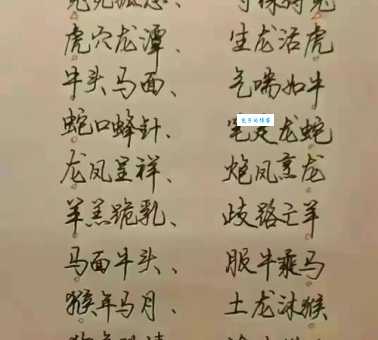 兔死狐悲、 守株待兔
虎穴龙潭、 生龙活虎
牛头马面、 气喘如牛
蛇口蜂针、 笔走龙蛇
龙凤呈祥、 炮凤烹龙
羊羔跪乳、 歧路亡羊
马面牛头、 服牛乘马
猴年马月、 土龙沐猴